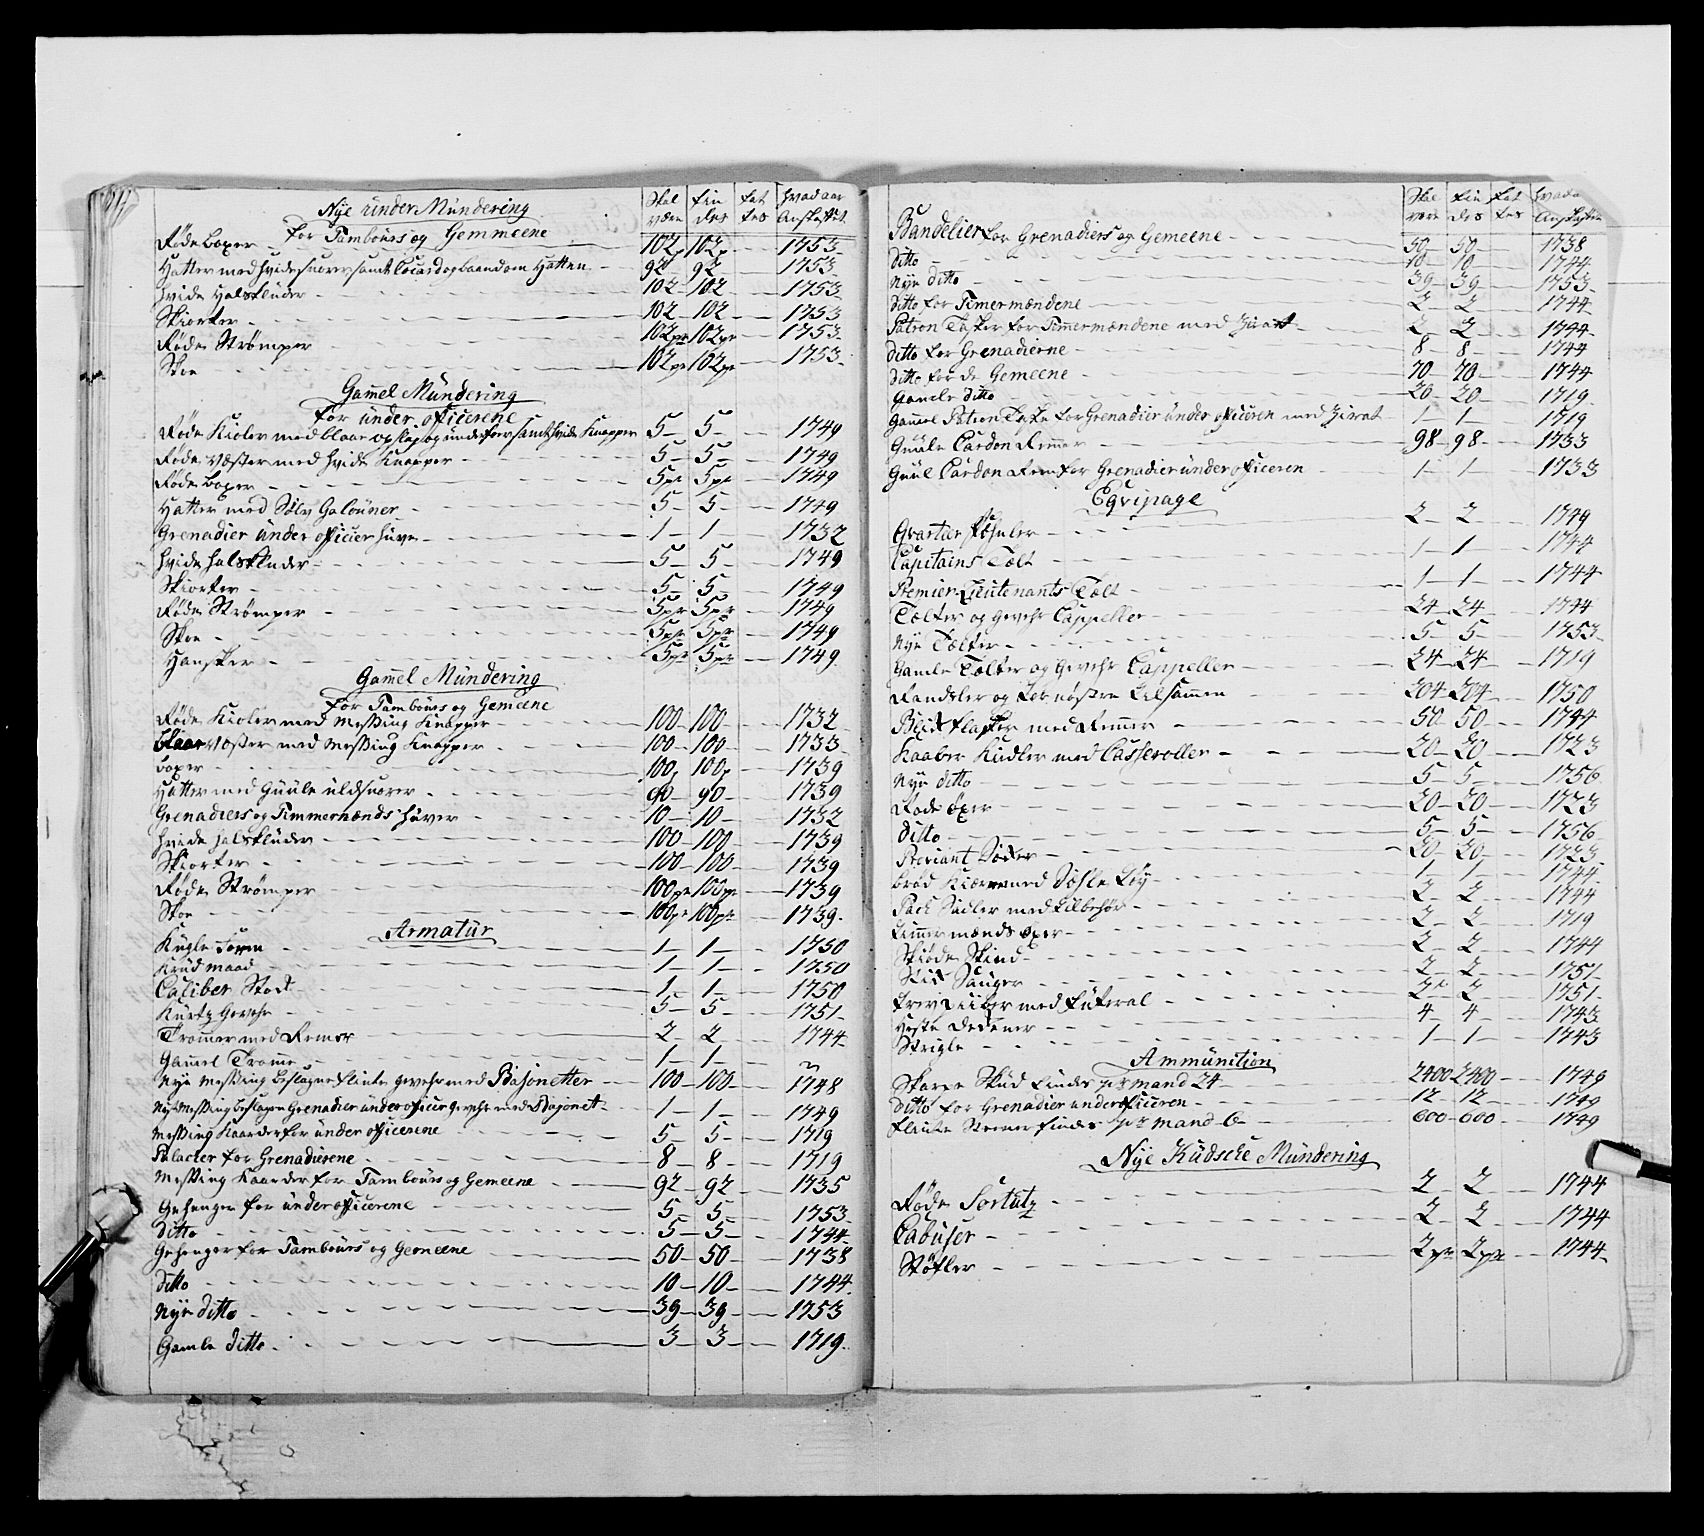 Nÿe under Mundering Skal være Fin des Fat tes Hvad aar Anskaffet
for Tambours og Gemmeene
Røde boxer 102p 102p 1753
Hatter med hvide snorer samt Cocard og baand om Hatten 92 92 1753
Hvide Halsklude 102 102 1753
Skiorter 102 102 1753
Røde Strømper 102pr 102pr 1753
Skoe 102pr 102pr 1753
Gamel Mundering
for under officerene
Røde Kioler med blaae opslag og underfoer samt hvide Knapper 5 5 1749
Røde Væster med hvide Knapper 5 5 1749
Røde boxer 5pr 5pr 1749
Hatter med Sølv Galouner 5 5 1749
Grenadier under officier huve 1 1 1732
Hvide halsklude 5 5 1749
Skiorter 5 5 1749
Røde Strømper 5pr 5pr 1749
Skoe 5pr 5pr 1749
Hansker 5pr 5pr 1749
Gamel Mundering
for Tambours og Gemeene
Røde Kioler med Messing Knapper 100 100 1732
Blaae Væster med Messing Knapper 100 100 1733
boxer 100p 100p 1739
Hatter med Guule uldsnorer 90 90 1739
Grenadiers og Timmermænds huver 10 10 1732
Hvide halsklude 100 100 1739
Skiorter 100 100 1739
Røde Strømper 100pr 100pr 1739
Skoe 100pr 100pr 1739
Armatur
Kugle Form 1 1 1750
Krud maad 1 1 1750
Caliber Stok 1 1 1750
Kurtz Gevehr 5 5 1751
Trommer med Remer 2 2 1744
Gamel Tromme 1 1
Nÿe Messing beslagne flinte gevehr med Bajonetter 100 100 1748
Nÿe Messing beslagen Grenadier under officer gevehr med Bajonet 1 1 1749
Messing Kaarder for under officerene 5 5 1719
Palacker for Grenadierene 8 8 1719
Messing Kaarder for Tambours og Gemeene 92 92 1735
Gehenger for under officerene 5 5 1753
Ditto 5 5 1744
Gehenger for Tambours og Gemeene 50 50 1738
Ditto 10 10 1744
Nÿe Ditto 39 39 1753
Gamle Ditto 3 3 1719
Skal være Fin des Fat tes Hvad a Anskaffen
Bandelier for Grenadiers og Gemeene 50 50 1738
Ditto 10 10 1744
Nÿe Ditto 39 39 1753
Ditto for Timermændene 2 2 1744
Patron Tasker for Timmermændene med Zirat 2 2 1744
Ditto for Grenadierne 8 8 1744
Ditto for de Gemeene 70 70 1744
Gamle ditto 20 20 1719
Gammel Patron Taske for Grenadier under officeren med Zirat 1 1 1719
Guule Cardon Remmer 98 98 1733
Guul Cardon Rem for Grenadier under officeren 1 1 1733
Eqvipage
Qvartier 2 2 1749
Capitains Tælt 1 1 1744
Premier-Lieutenants Tælt 1 1 1744
Tælter og gevehr Cappeller 24 24 1744
Nÿe Tælter 5 5 1753
Gamle Tælter og Gevehr Cappeller 24 24 1719
Randsler og tornøstre tilsammen 204 204 1750
Blik flasker med Remmer 50 50 1744
Kaaber Kiedler med Casseroller 20 20 1723
Nÿe Ditto 5 5 1756
Rode Øxer 20 20 1723
Ditto 5 5 1756
Proviant 20 20 1723
Brød Kierre med 1 1 1744
Pack Sadler med tilbehør 2 2 1744
Timmermænds Øxer 2 2 1719
Skiøde Skind 2 2 1744
Stik Sauger 2 2 1751
med Futeral 2 2 1751
Heste Deckener 4 4 1743
Strigle 1 1 1743
Ammunition
Skarpe Skud findes pr mand 24 2400 2400 1749
Ditto for Grenadier underofficeren 12 12 1749
Flinte Steene findes pr mand 6 600 600 1749
Nÿe Kudske Mundering
Røde Sortutz 2 2 1744
Cabuser 2 2 1744
Støfler 2pr 2pr 1744